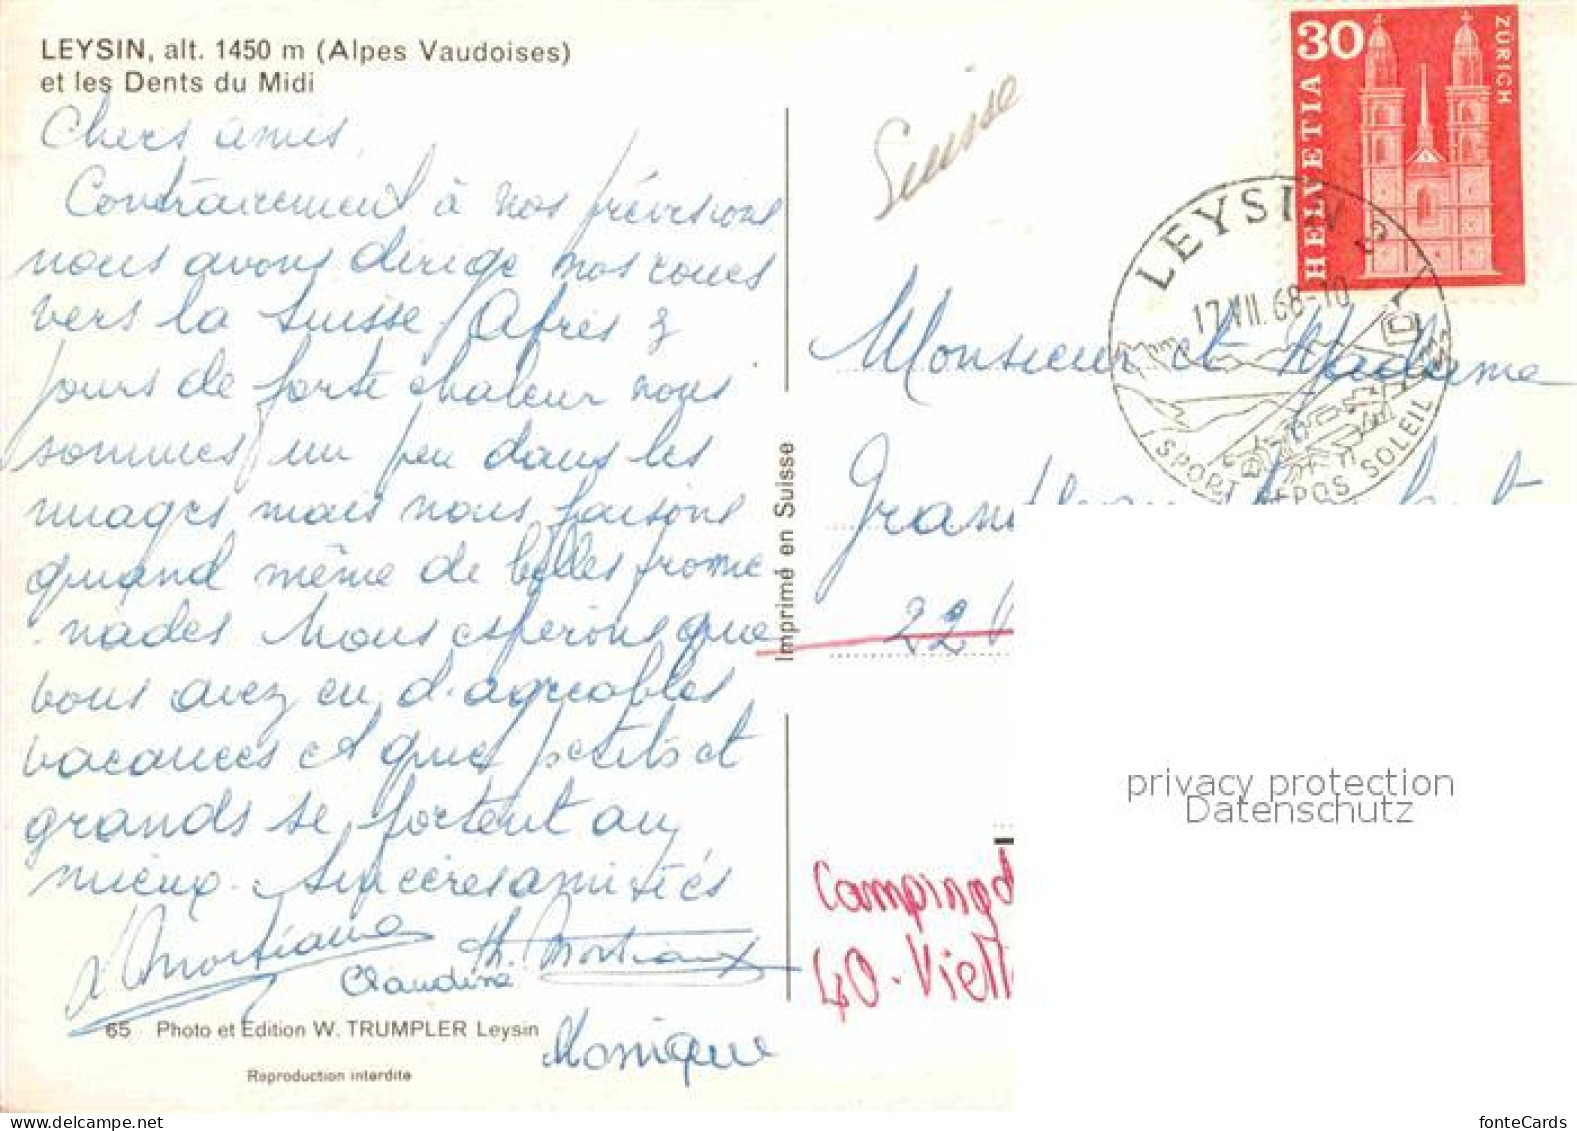 LEYSIN, alt. 1450 m (Alpes Vaudoises)
et les Dents du Midi
Chers amis,
Contrairement à nos prévisions
nous avons dirigé nos roues
vers la Suisse. Après 3
jours de forte chaleur nous
sommes un peu dans les
nuages mais nous faisons
quand même de belles prome
nades. Nous espérons que
vous avez eu d'agréables
vacances et que petits et
grands se portent au
mieux. Sincères amitiés
Mortiaux
Claudine
Monique
65 Photo et Edition W. TRUMPLER Leysin
Reproduction interdite
Imprimé en Suisse
Suisse
30
HELVETIA
ZÜRICH
LEYSIN
17.VII.68-10
SPORT REPOS SOLEIL
Monsieur et Madame
22
Camping
40 -
privacy protection
Datenschutz
fonteCards